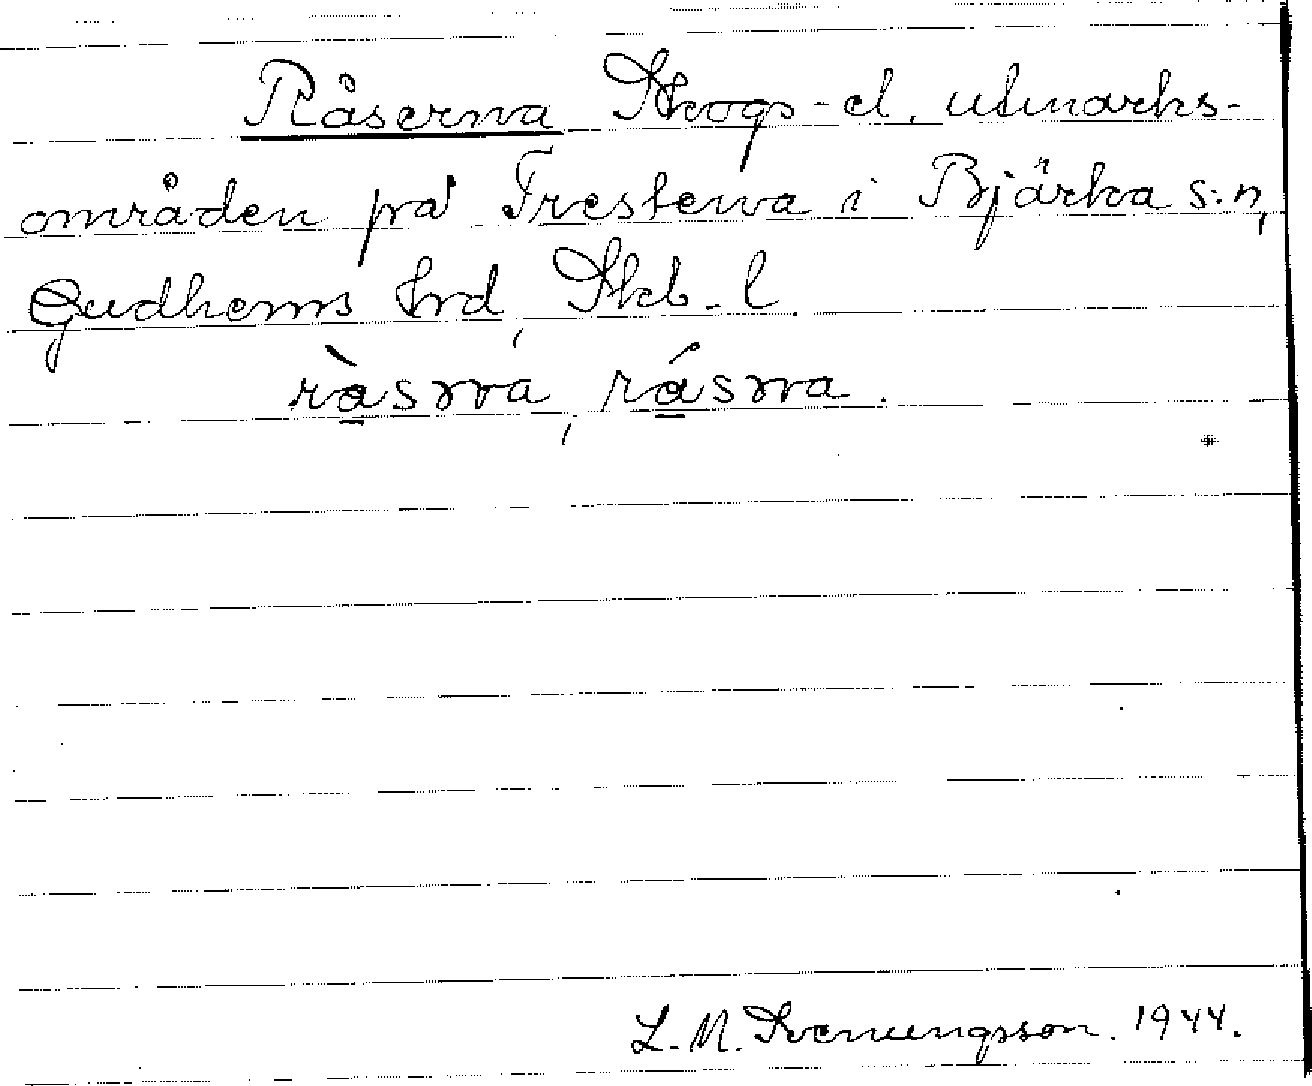 Råserna Skogs- el. utmarks-
områden på Trestena i Bjärka s:n,
Gudhems hrd, Skb. l.
ràsɴa, rásɴa.
L. M. Svenungsson. 1944.